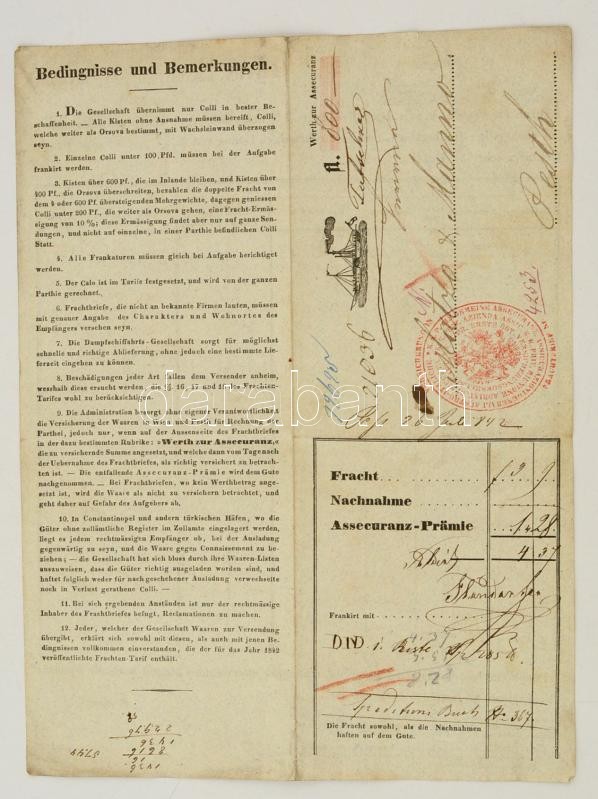 Bedingnisse und Bemerkungen.
1. Die Gesellschaft übernimmt nur Colli in bester Be-
schaffenheit. — Alle Kisten ohne Ausnahme müssen bereift, Colli,
welche weiter als Orsova bestimmt, mit Wachsleinwand überzogen
seyn.
2. Einzelne Colli unter 100 Pfd. müssen bei der Aufgabe
frankirt werden.
3. Kisten über 600 Pf., die im Inlande bleiben, und Kisten über
400 Pf., die Orsova überschreiten, bezahlen die doppelte Fracht von
dem 4 oder 600 Pf. übersteigenden Mehrgewichte, dagegen geniessen
Colli unter 200 Pf., die weiter als Orsova gehen, eine Fracht-Ermäs-
sigung von 10 %; diese Ermässigung findet aber nur auf ganze Sen-
dungen, und nicht auf einzelne, in einer Parthie befindlichen Colli
Statt.
4. Alle Frankaturen müssen gleich bei Aufgabe berichtiget
werden.
5. Der Calo ist im Tarife festgesetzt, und wird von der ganzen
Parthie gerechnet.
6. Frachtbriefe, die nicht an bekannte Firmen lauten, müssen
mit genauer Angabe des Charakters und Wohnortes des
Empfängers versehen seyn.
7. Die Dampfschiffahrts-Gesellschaft sorgt für möglichst
schnelle und richtige Ablieferung, ohne jedoch eine bestimmte Lie-
ferzeit eingehen zu können.
8. Beschädigungen jeder Art fallen dem Versender anheim,
wesshalb diese ersucht werden, die §§. 16, 17 und 18 des Frachten-
Tarifes wohl zu berücksichtigen.
9. Die Administration besorgt ohne eigener Verantwortlichkeit
die Versicherung der Waaren in Wien und Pesth für Rechnung der
Parthei, jedoch nur, wenn auf der Aussenseite des Frachtbriefes
in der dazu bestimmten Rubrike: »Werth zur Assecuranz,«
die zu versichernde Summe angesetzt, und welche dann vom Tage nach
der Uebernahme des Frachtbriefes, als richtig versichert zu betrach-
ten ist. — Die entfallende Assecuranz-Prämie wird dem Gute
nachgenommen. — Bei Frachtbriefen, wo kein Werthbetrag ange-
setzt ist, wird die Waare als nicht zu versichern betrachtet, und
geht daher auf Gefahr des Aufgebers ab.
10. In Constantinopel und andern türkischen Häfen, wo die
Güter ohne zollämtliche Register im Zollamte eingelagert werden,
liegt es jedem rechtmässigen Empfänger ob, bei der Ausladung
gegenwärtig zu seyn, und die Waare gegen Connaissement zu be-
ziehen; — die Gesellschaft hat sich bloss durch ihre Waaren-Listen
auszuweisen, dass die Güter richtig ausgeladen worden sind, und
haftet folglich weder für nach geschehener Ausladung verwechselte
noch in Verlust gerathene Colli. —
11. Bei sich ergebenden Anständen ist nur der rechtmässige
Inhaber des Frachtbriefes befugt, Reclamationen zu machen.
12. Jeder, welcher der Gesellschaft Waaren zur Versendung
übergibt, erklärt sich sowohl mit diesen, als auch mit jenen Be-
dingnissen vollkommen einverstanden, die der für das Jahr 1842
veröffentlichte Frachten-Tarif enthält.
Werth zur Assecuranz
fl. 600
Manno
Pesth
2036
4263
darabanth
Fracht
Nachnahme
Assecuranz-Prämie 1 28
4 37
Frankirt mit
Speditions Buch No 367
Die Fracht sowohl, als die Nachnahmen
haften auf dem Gute.